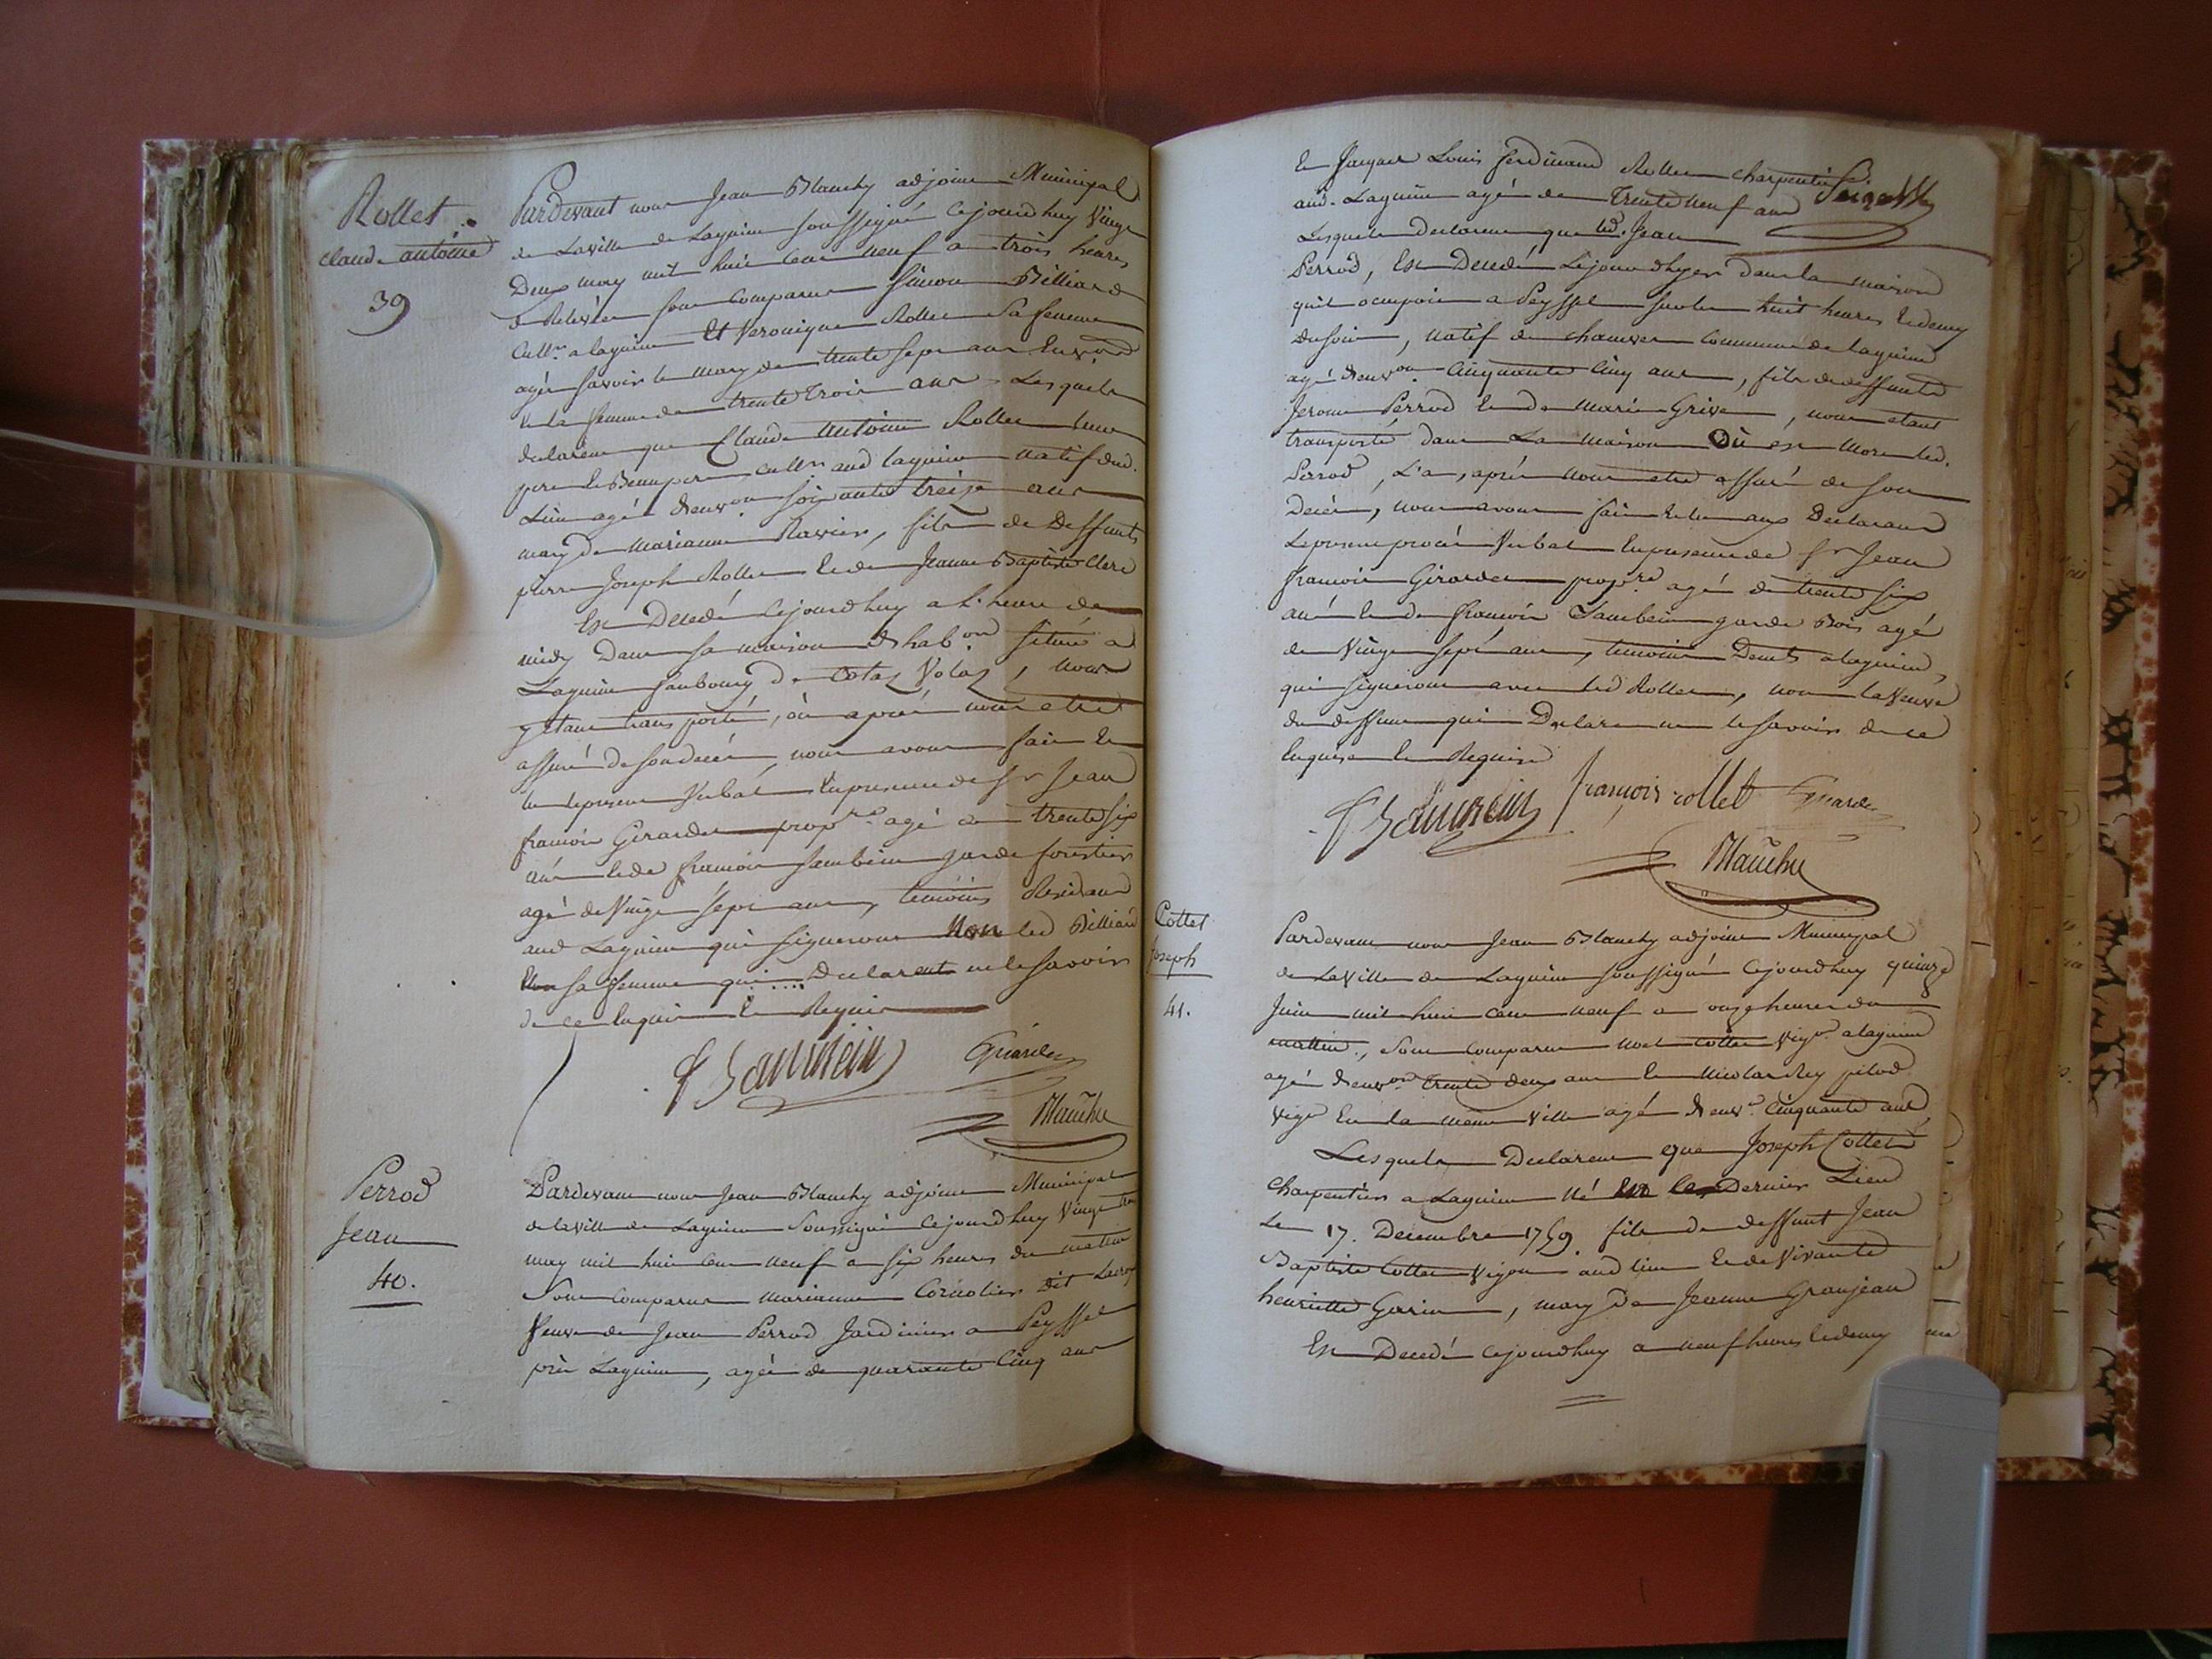 Rollet
claude antoine
39
Pardevant nous Jean Blanchy adjoint Municipal
de La ville de Lagnieu soussigné Cejourdhuy Vingt
Deux may mil huit cent neuf a trois heures
de Relevée sont Comparus Simon Billiard
Cultr. a lagnieu Et Veronique Rollet Sa femme
agés savoir le mary de trente sept ans Environ
Et la femme de trente Trois ans Lesquels
declarent que Claude Antoine Rollet leur
pere Et Beaupere cultr. aud lagnieu natif dud.
Lieu agé denvon. soixante treize ans
mary de marianne Ravier, fils de Deffunts
pierre Joseph Rollet Et de Jeanne Baptiste Clerc
Est Decedé Cejourdhuy a L'heure de
midy Dans sa maison Dhabon. située a
Lagnieu faubourg de Cotaz Volaz, nous
y etant transporté, où aprés nous etre
assuré de son decés, nous avons fait Et
lu le present Verbal En presence de Sr Jean
francois Girardet propre. agé de trente six
ans Et de francois Jambein garde forestier
agé de Vingt sept ans, temoins Residant
aud Lagnieu qui signeront Non led Billiard
sa femme qui Declarent ne le savoir
de ce Enquis Et Requis
f Jambein Girardet
Blanchy
Perrod
Jean
40.
Pardevant nous Jean Blanchy adjoint Municipal
de la ville de Lagnieu Soussigné Cejourdhuy Vingt
may mil huit cent neuf a six heures du matin
Sont Comparus marianne Cornolier Dit
Veuve de Jean Perrod Jardinier a Peyssel
près Lagnieu, agée de quarante Cinq ans
Et Jacques Louis ferdinand Rollet charpentier
aud. Lagnieu agé de Trente neuf ans
Lesquels Declarent que led. Jean
Perrod, Est Decedé Lejour dhyer dans la maison
quil occupoit a Peyssel sur les huit heures Et demy
du soir, natif de chamves Commune de lagnieu
agé denvon. Cinquante Cinq ans, fils de deffunts
Jerome Perrod Et de Marie Grive, nous etant
transporté dans La Maison Où est Mort led.
Perrod, L'a, aprés nous etre assuré de son
Decés, nous avons fait Et lu aux Declarans
Le present procés Verbal En presence de Sr Jean
francois Girardet propre. agé de trente six
ans Et de francois Jambein garde Bois agé
de Vingt sept ans, temoins Demts a lagnieu,
qui signeront avec led Rollet, non la Veuve
du deffunt qui Declare ne le savoir de ce
Enquise Et Requise
f Jambein françois rollet Girardet
Blanchy
Cottet
Joseph
41.
Pardevant nous Jean Blanchy adjoint Municipal
de la Ville de Lagnieu soussigné Cejourdhuy quinze
Juin mil huit cent neuf a onze heures du
mattin, sont Comparus Noel Cottet Vigon a lagnieu
agé denvon trente deux ans Et Nicolas Rey pitod
Vigon En la meme Ville agé denv. Cinquante ans
Lesquels Declarent que Joseph Cottet
Charpentier a Lagnieu Né Dernier Lieu
Le 17. Decembre 1759 fils de deffunt Jean
Baptiste Cottet Vigon aud lieu Et de Vivante
henriette Garin, mary de Jeanne Granjean
Est Decedé Cejourdhuy a neuf heures Et demy